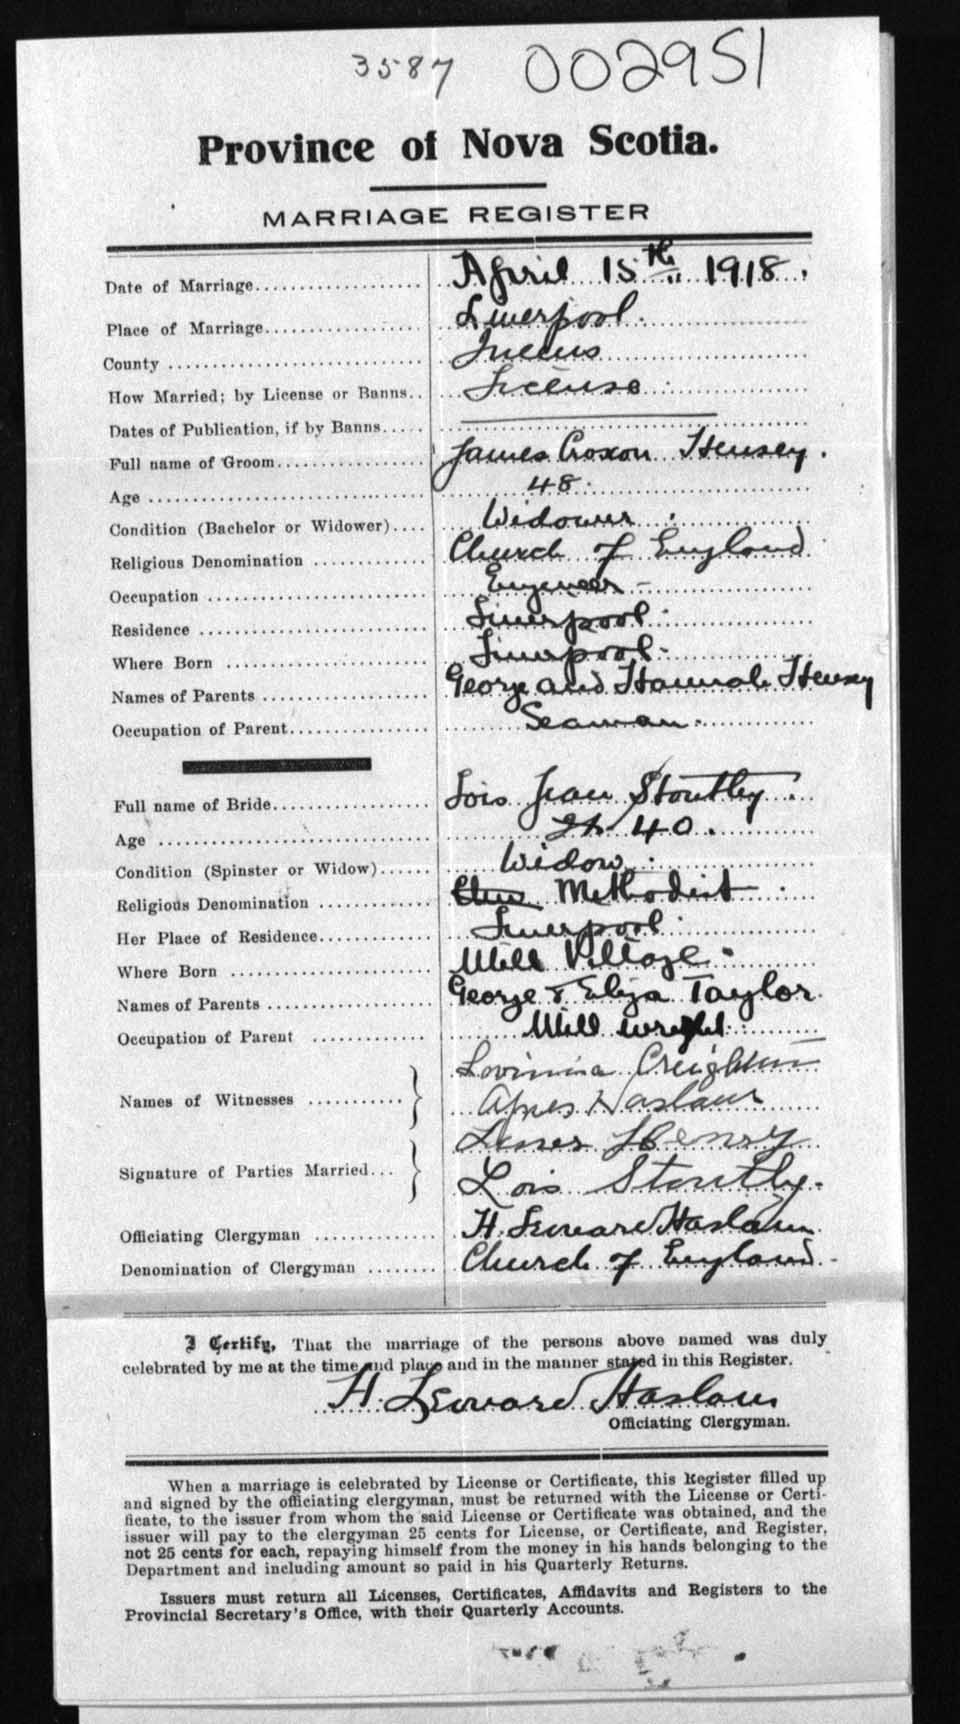 3587 002951
Province of Nova Scotia.
MARRIAGE REGISTER
Date of Marriage April 15th 1918.
Place of Marriage Liverpool.
County Queens
How Married; by License or Banns License
Dates of Publication, if by Banns
Full name of Groom James Croxon Hensey.
Age 48.
Condition (Bachelor or Widower) Widower
Religious Denomination Church of England
Occupation Engineer
Residence Liverpool
Where Born Liverpool
Names of Parents George and Hannah Hensey
Occupation of Parent Seaman
Full name of Bride Lois Jean Stoutley.
Age 40.
Condition (Spinster or Widow) Widow
Religious Denomination Methodist
Her Place of Residence Liverpool
Where Born Mill Village
Names of Parents George & Eliza Taylor.
Occupation of Parent Mill wright
Lovinnia Creighton
Names of Witnesses
Agnes Haslam
James Hensy
Signature of Parties Married
Lois Stoutly.
Officiating Clergyman H. Haslam
Denomination of Clergyman Church of England
I Certify, That the marriage of the persons above named was duly
celebrated by me at the time and place and in the manner stated in this Register.
H. Haslam
Officiating Clergyman.
When a marriage is celebrated by License or Certificate, this Register filled up
and signed by the officiating clergyman, must be returned with the License or Certi-
ficate, to the issuer from whom the said License or Certificate was obtained, and the
issuer will pay to the clergyman 25 cents for License, or Certificate, and Register,
not 25 cents for each, repaying himself from the money in his hands belonging to the
Department and including amount so paid in his Quarterly Returns.
Issuers must return all Licenses, Certificates, Affidavits and Registers to the
Provincial Secretary's Office, with their Quarterly Accounts.